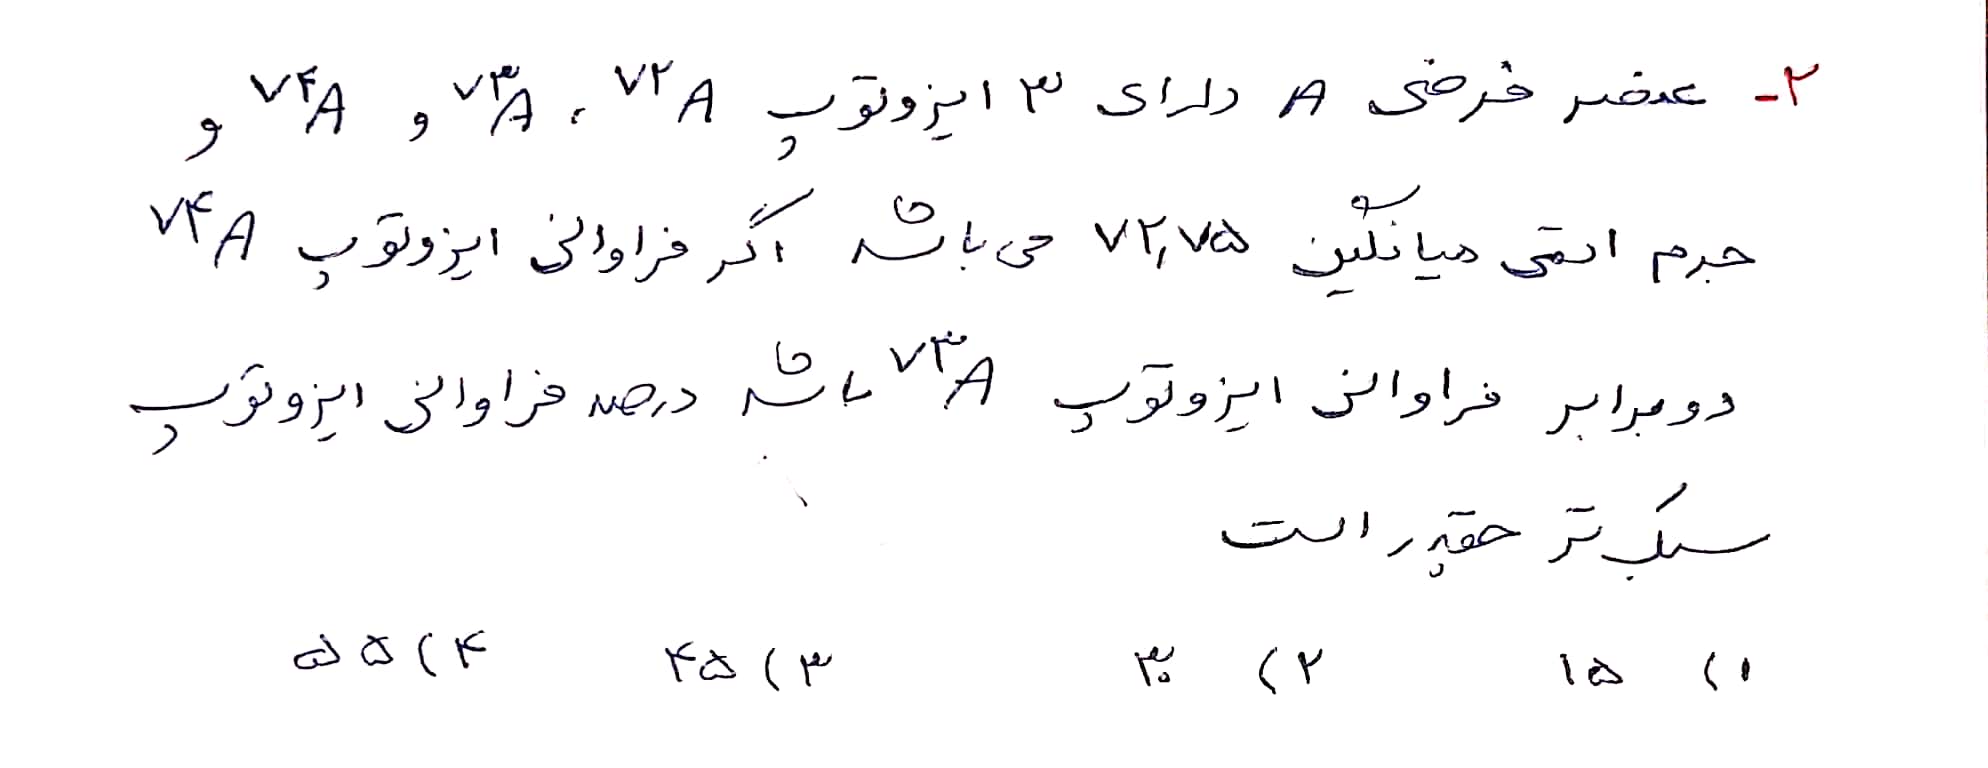 ۲- عنصر فرضی A دارای ۳ ایزوتوپ ⁷²A ، ⁷³A و ⁷⁴A و
جرم اتمی میانگین ۷۲,۷۵ می باشد اگر فراوانی ایزوتوپ ⁷⁴A
دو برابر فراوانی ایزوتوپ ⁷³A باشد درصد فراوانی ایزوتوپ
سبک تر چقدر است
۱) ۱۵ ۲) ۳۰ ۳) ۴۵ ۴) ۵۵